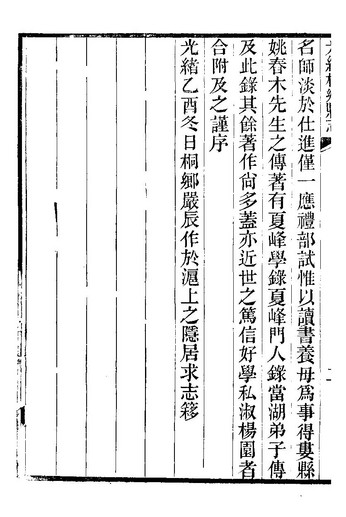 名師淡於仕進僅一應禮部試惟以讀書養母爲事得婁縣
姚春木先生之傳著有夏峰學錄夏峰門人錄當湖弟子傳
及此錄其餘著作尙多蓋亦近世之篤信好學私淑楊園者
合附及之謹序
光緖乙酉冬日桐鄉嚴辰作於滬上之隱居求志簃